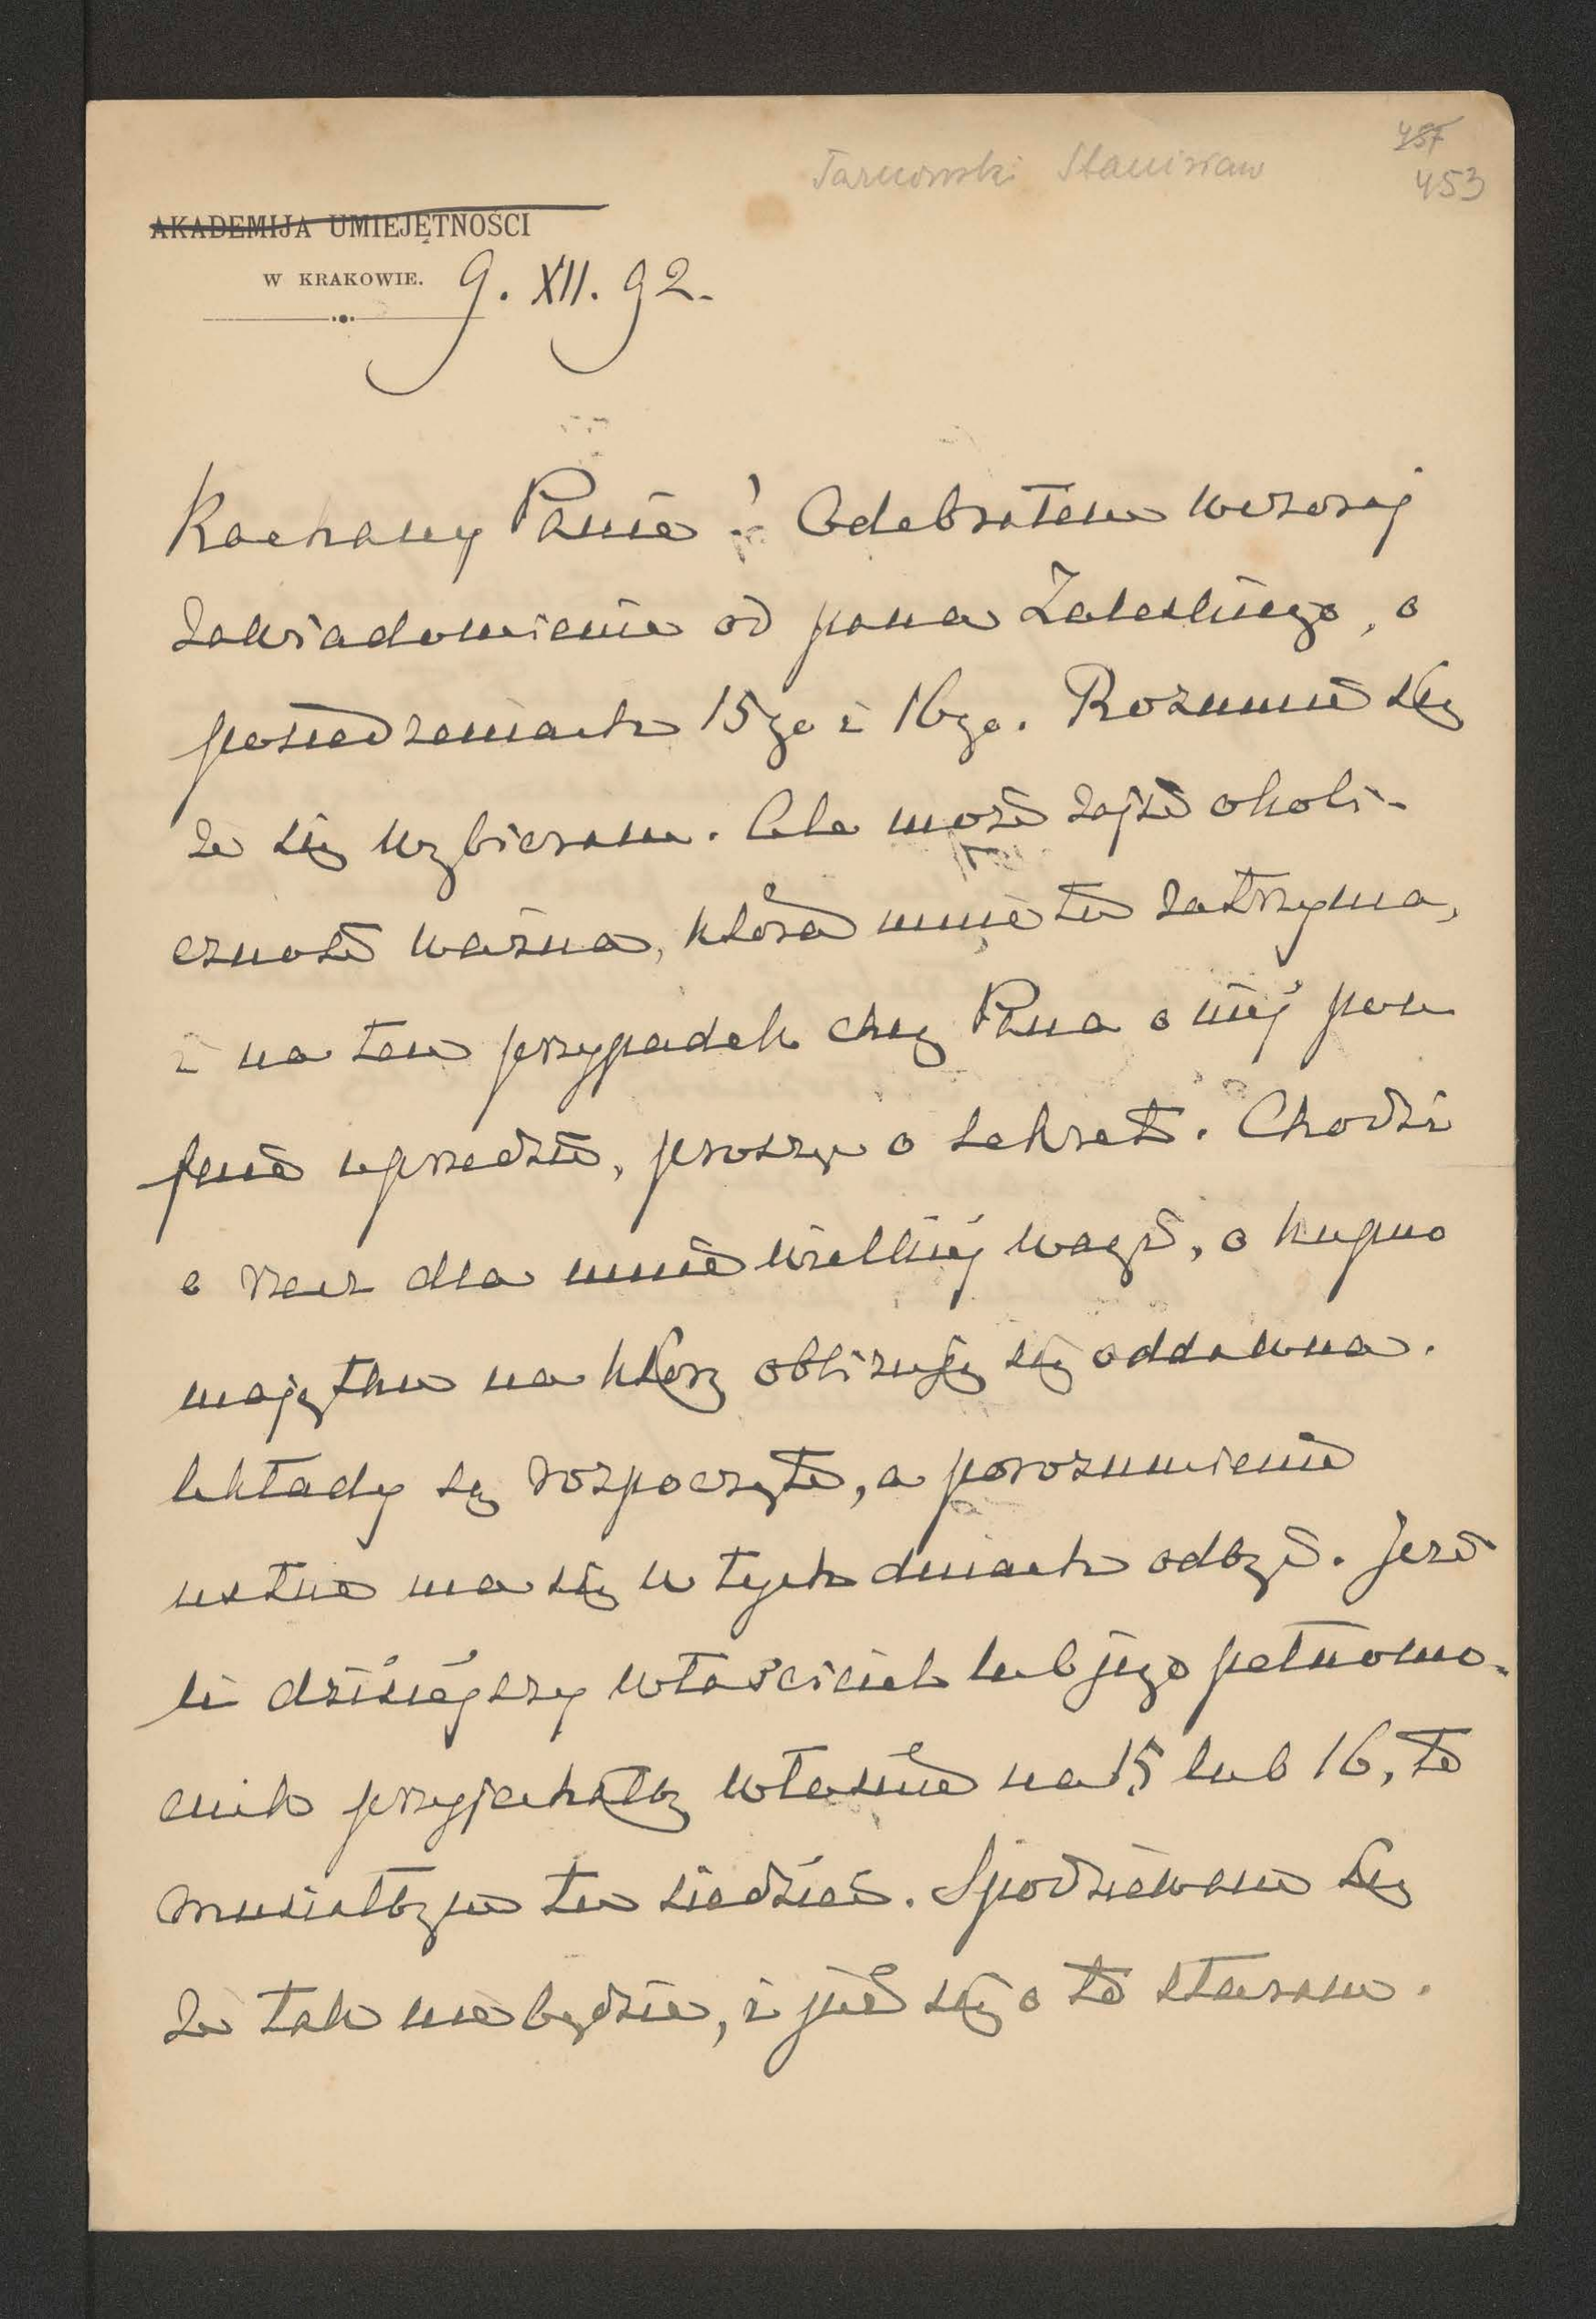 Tarnowski Stanisław
457
453
AKADEMIJA UMIEJĘTNOŚCI
W KRAKOWIE. 9. XII. 92.
Kochany Panie! Odebrałem wczoraj
zawiadomienie od pana Zaleskiego, o
posiedzeniach 15go i 16go. Rozumie się
że się wybieram. Ale może zajść okoli-
czność ważna, która mnie tu zatrzyma,
i na ten przypadek chcę Pana o niej pou
fnie uprzedzić, proszę o sekret. Chodzi
o rzecz dla mnie wielkiej wagi, o kupno
majątku na który oblizuję się oddawna.
Układy są rozpoczęte, a porozumienie
ustne ma się w tych dniach odbyć. Jeże
li dzisiejszy właściciel lub jego pełnomo-
cnik przyjechałby właśnie na 15 lub 16, to
musiałbym tu siedzieć. Spodziewam się
że tak nie będzie, i już się o to staram.